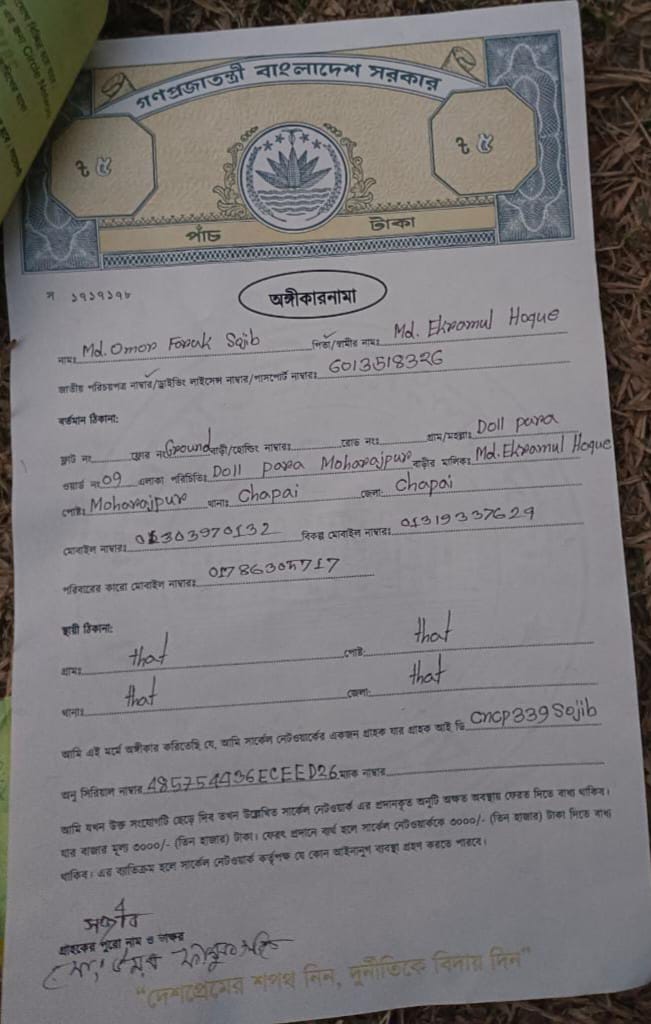 গণপ্রজাতন্ত্রী বাংলাদেশ সরকার
৳ ৫ ৳ ৫
পাঁচ টাকা
অঙ্গীকারনামা
নামঃ Md. Omor Faruk Sajib পিতা/স্বামীর নামঃ Md. Ekramul Hoque
জাতীয় পরিচয়পত্র নাম্বার/ড্রাইভিং লাইসেন্স নাম্বার/পাসপোর্ট নাম্বারঃ 6013518326
বর্তমান ঠিকানা:
ফ্লাট নং ফ্লোর নং Ground বাড়ী/হোল্ডিং নাম্বারঃ রোড নংঃ গ্রাম/মহল্লাঃ Doll para
ওয়ার্ড নং 09 এলাকা পরিচিতিঃ Doll para Moharajpur বাড়ীর মালিকঃ Md. Ekramul Hoque
পোষ্টঃ Moharajpur থানাঃ Chapai জেলাঃ Chapai
মোবাইল নাম্বারঃ 01303970132 বিকল্প মোবাইল নাম্বারঃ 01319337629
পরিবারের কারো মোবাইল নাম্বারঃ 01786305717
স্থায়ী ঠিকানা:
গ্রামঃ that পোষ্ট: that
থানাঃ that জেলা: that
আমি এই মর্মে অঙ্গীকার করিতেছি যে, আমি সার্কেল নেটওয়ার্কের একজন গ্রাহক যার গ্রাহক আই ডি CNCP339Sojib
অনু সিরিয়াল নাম্বার 485754436ECEED26 ম্যাক নাম্বার
আমি যখন উক্ত সংযোগটি ছেড়ে দিব তখন উল্লেখিত সার্কেল নেটওয়ার্ক এর প্রদানকৃত অনুটি অক্ষত অবস্থায় ফেরত দিতে বাধ্য থাকিব।
যার বাজার মূল্য ৩০০০/- (তিন হাজার) টাকা। ফেরৎ প্রদানে ব্যর্থ হলে সার্কেল নেটওয়ার্ককে ৩০০০/- (তিন হাজার) টাকা দিতে বাধ্য
থাকিব। এর ব্যতিক্রম হলে সার্কেল নেটওয়ার্ক কর্তৃপক্ষ যে কোন আইনানুগ ব্যবস্থা গ্রহণ করতে পারবে।
গ্রাহকের পুরো নাম ও স্বাক্ষর
"দেশপ্রেমের শপথ নিন, দুর্নীতিকে বিদায় দিন"